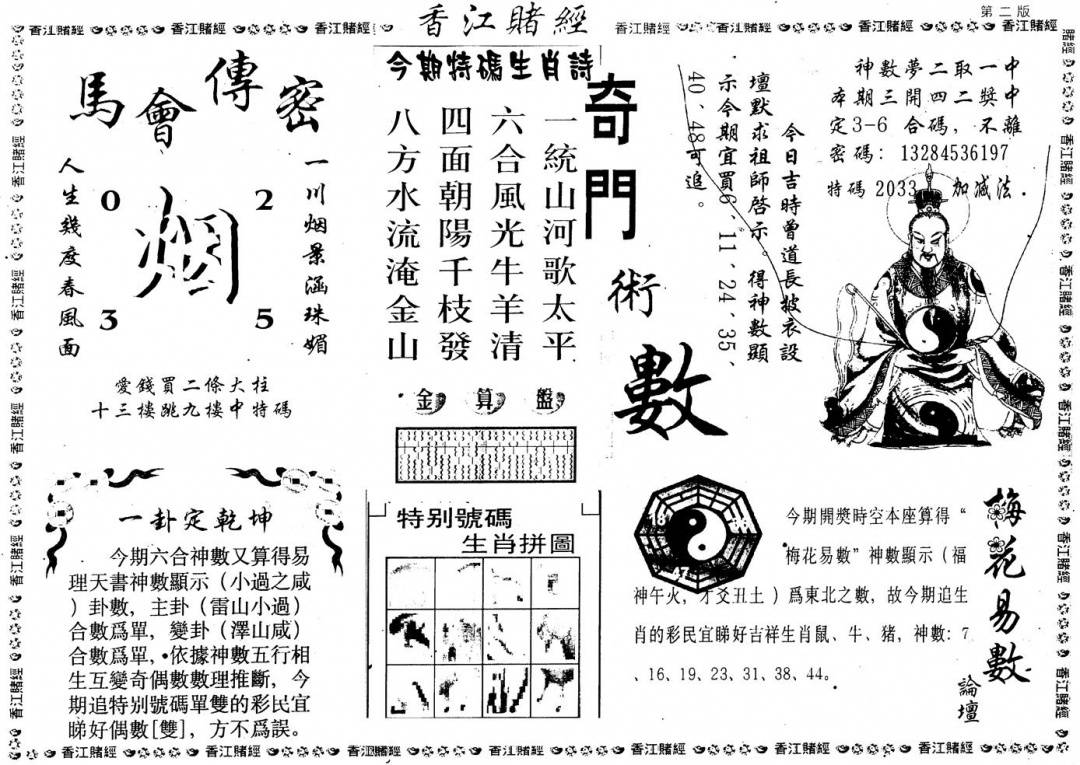 第二版
香江賭經
馬會傳密
一川烟景涵珠媚
人生幾度春風面
0 2
烟
3 5
愛錢買二條大柱
十三樓跳九樓中特碼
今期特碼生肖詩
一統山河歌太平
六合風光牛羊清
四面朝陽千枝發
八方水流淹金山
金算盤
奇門術數
今日吉時曾道長披衣設
壇默求祖師啓示。得神數顯
示今期宜買6、11、24、35、
40、48可追。
神數夢二取一中
本期三開四二獎中
定3-6 合碼，不離
密碼：13284536197
特碼 2033 加减法.
一卦定乾坤
今期六合神數又算得易
理天書神數顯示（小過之咸
）卦數，主卦（雷山小過）
合數爲單，變卦（澤山咸）
合數爲單，依據神數五行相
生互變奇偶數數理推斷，今
期追特别號碼單雙的彩民宜
睇好偶數[雙]，方不爲誤。
特别號碼
生肖拼圖
梅花易數
論壇
今期開獎時空本座算得“
梅花易數”神數顯示（福
神午火，才爻丑土）爲東北之數，故今期追生
肖的彩民宜睇好吉祥生肖鼠、牛、猪，神數：7
、16、19、23、31、38、44。
香江賭經 香江賭經 香江賭經 香江賭經 香江賭經 香江賭經 香江賭經